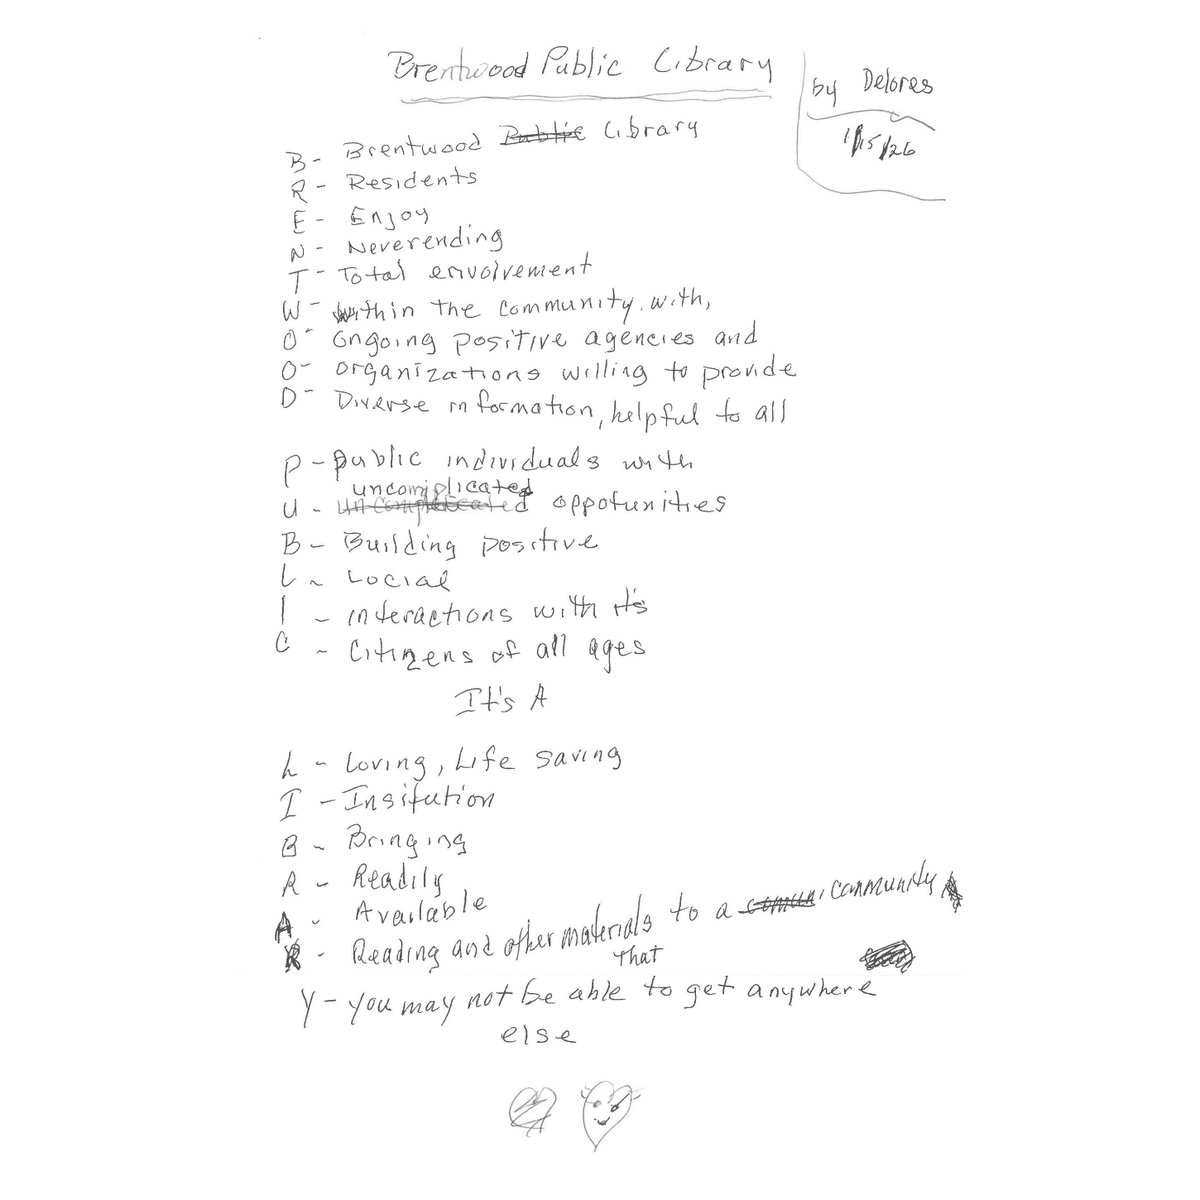 Brentwood Public Library
by Delores
1/15/26
B - Brentwood Public Library
R - Residents
E - Enjoy
N - Neverending
T - Total envolvement
W - within the community with,
O - Ongoing positive agencies and
O - organizations willing to provide
D - Diverse information, helpful to all
P - public individuals with
uncomiplicated
U - uncompleteated oppotunities
B - Building positive
L - Local
I - interactions with it's
C - Citizens of all ages
It's A
L - Loving, Life saving
I - Insitution
B - Bringing
R - Readily
A - Available
R - Reading and other materials to a comun community
That
Y - you may not be able to get anywhere
else